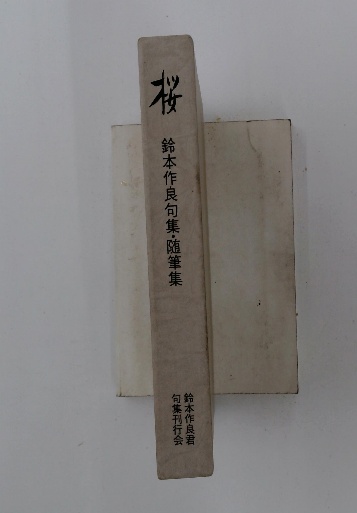 桜
鈴木作良句集・随筆集
鈴木作良君
句集刊行会